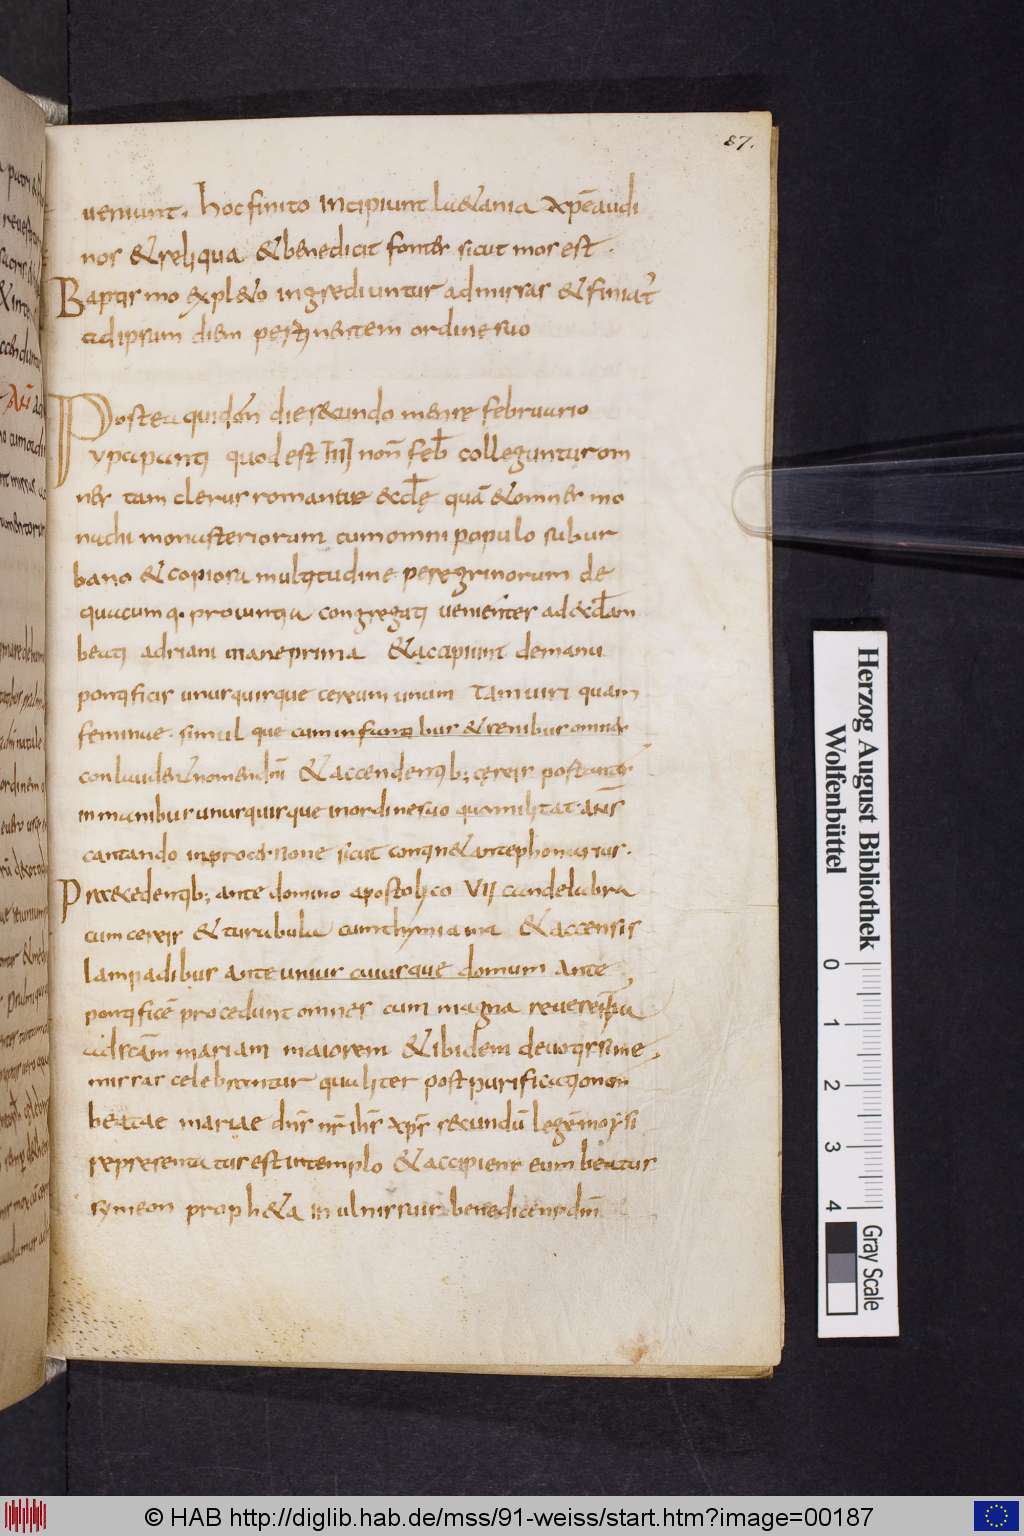 87.
ueniunt. hoc finito incipiunt lu&ania xp̄e audi
nos & reliqua & benedicit fontes sicut mos est.
Baptismo expl&o ingrediuntur ad missas & finiat̄
adipsum diem pertinentem ordine suo
Postea quidē die secundo mense februario
ypapanti quod est IIII non̄ feb̄ colleguntur om
nes tam clerus romanae eccl̄ę quā & omnes mo
nachi monasteriorum cum omni populo subur
bano & copiosa multitudine peregrinorum de
quacumq. prouintia congregati uenientes ad eccl̄am
beati adriani mane prima & accipiunt de manu
pontificis unusquisque cereum unum tam uiri quam
feminae. simul que cum infantibus & senibus omnes
conlaudent nomen dn̄i & accendentib; cereis postant
in manibus unusquisque in ordine suo quo militat an̄s
cantando in processione sicut contin& antephonarius.
Praecedentib; ante domno apostolico VII candelabra
cum cereis & turabula cum thymiama & accensis
lampadibus ante unius cuiusque domum ante
pontificē procedunt omnes cum magna reuerentia
ad sc̄am mariam maiorem & ibidem deuotissime
missas celebrantur qualiter post purificationem
beatae mariae dn̄s nr̄ ih̄s xp̄s secundū legē moysi
representatus est in templo & accipiens eum beatus
symeon proph&a in ulnis suis benedicens dn̄m
Herzog August Bibliothek
Wolfenbüttel
0 1 2 3 4
Gray Scale
© HAB http://diglib.hab.de/mss/91-weiss/start.htm?image=00187